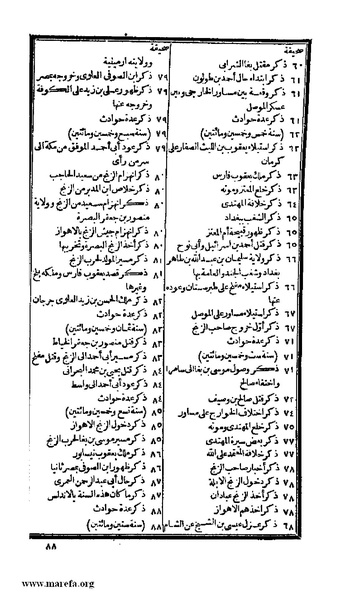 صحيفة
٦٠ ذكر مقتل بغا الشرابي
٦٠ ذكر ابتداء حال أحمد بن طولون
٦١ ذكر وقعة بين مساور الخارجي وبين
عسكر الموصل
٦١ ذكر عدة حوادث
٦٢ (سنة خمس وخمسين ومائتين)
٦٢ ذكر استيلاء يعقوب بن الليث الصفار على
كرمان
٦٣ ذكر ملك يعقوب فارس
٦٣ ذكر خلع المعتز وموته
٦٤ ذكر خلافة المهتدي
٦٥ ذكر الشغب ببغداد
٦٥ ذكر ظهور قبيحة أم المعتز
٦٥ ذكر قتل أحمد بن اسرائيل وأبي نوح
٦٦ ذكر ولاية سليمان بن عبد الله بن طاهر
بغداد وشغب الجند والعامة بها
٦٦ ذكر استيلاء مفلح على طبرستان وعوده
عنها
٦٧ ذكر استيلاء مساور على الموصل
٦٧ ذكر أول خروج صاحب الزنج
٧١ ذكر عدة حوادث
٧١ (سنة ست وخمسين ومائتين)
٧١ ذكر وصول موسى بن بغا الى سامرا
واختفاء صالح
٧٢ ذكر قتل صالح بن وصيف
٧٤ ذكر اختلاف الخوارج على مساور
٧٥ ذكر خلع المهتدي وموته
٧٧ ذكر بعض سيرة المهتدي
٧٧ ذكر خلافة المعتمد على الله
٧٧ ذكر أخبار صاحب الزنج
٧٧ ذكر دخول الزنج الابلة
٧٨ ذكر أخذ الزنج عبادان
٧٨ ذكر أخذهم الاهواز
٧٨ ذكر عزل عيسى بن الشيخ عن الشام
صحيفة
وولايته ارمينية
٧٩ ذكر ابن الصوفي العلوي وخروجه بمصر
٧٩ ذكر ظهور علي بن زيد على الكوفة
وخروجه عنها
٧٩ ذكر عدة حوادث
٧٩ (سنة سبع وخمسين ومائتين)
٧٩ ذكر عود أبي أحمد الموفق من مكة الى
سر من رأى
٨٠ ذكر انهزام الزنج من سعيد الحاجب
٨٠ ذكر خلاص ابن المدبر من الزنج
٨٠ ذكر انهزام سعيد من الزنج وولاية
منصور بن جعفر البصرة
٨٠ ذكر انهزام جيش الزنج بالاهواز
٨٠ ذكر أخذ الزنج البصرة وتخريبها
٨١ ذكر مسير المولد لحرب الزنج
٨١ ذكر قصد يعقوب فارس وملكه بلخ
وغيرها
٨٢ ذكر ملك الحسن بن زيد العلوي جرجان
٨٢ ذكر عدة حوادث
٨٣ (سنة ثمان وخمسين ومائتين)
٨٣ ذكر قتل منصور بن جعفر الخياط
٨٣ ذكر مسير أبي أحمد الى الزنج وقتل مفلح
٨٤ ذكر قتل يحيى بن محمد البحراني
٨٤ ذكر عود أبي أحمد الى واسط
٨٤ ذكر عدة حوادث
٨٥ (سنة تسع وخمسين ومائتين)
٨٥ ذكر دخول الزنج الاهواز
٨٥ ذكر مسير موسى بن بغا لحرب الزنج
٨٦ ذكر ملك يعقوب نيسابور
٨٧ ذكر ظهور ابن الصوفي بمصر ثانيا
٨٧ ذكر حال أبي عبد الرحمن العمري
٨٧ ذكر ما كان هذه السنة بالاندلس
٨٨ ذكر عدة حوادث
٨٨ (سنة ستين ومائتين)
٨٨
www.marefa.org